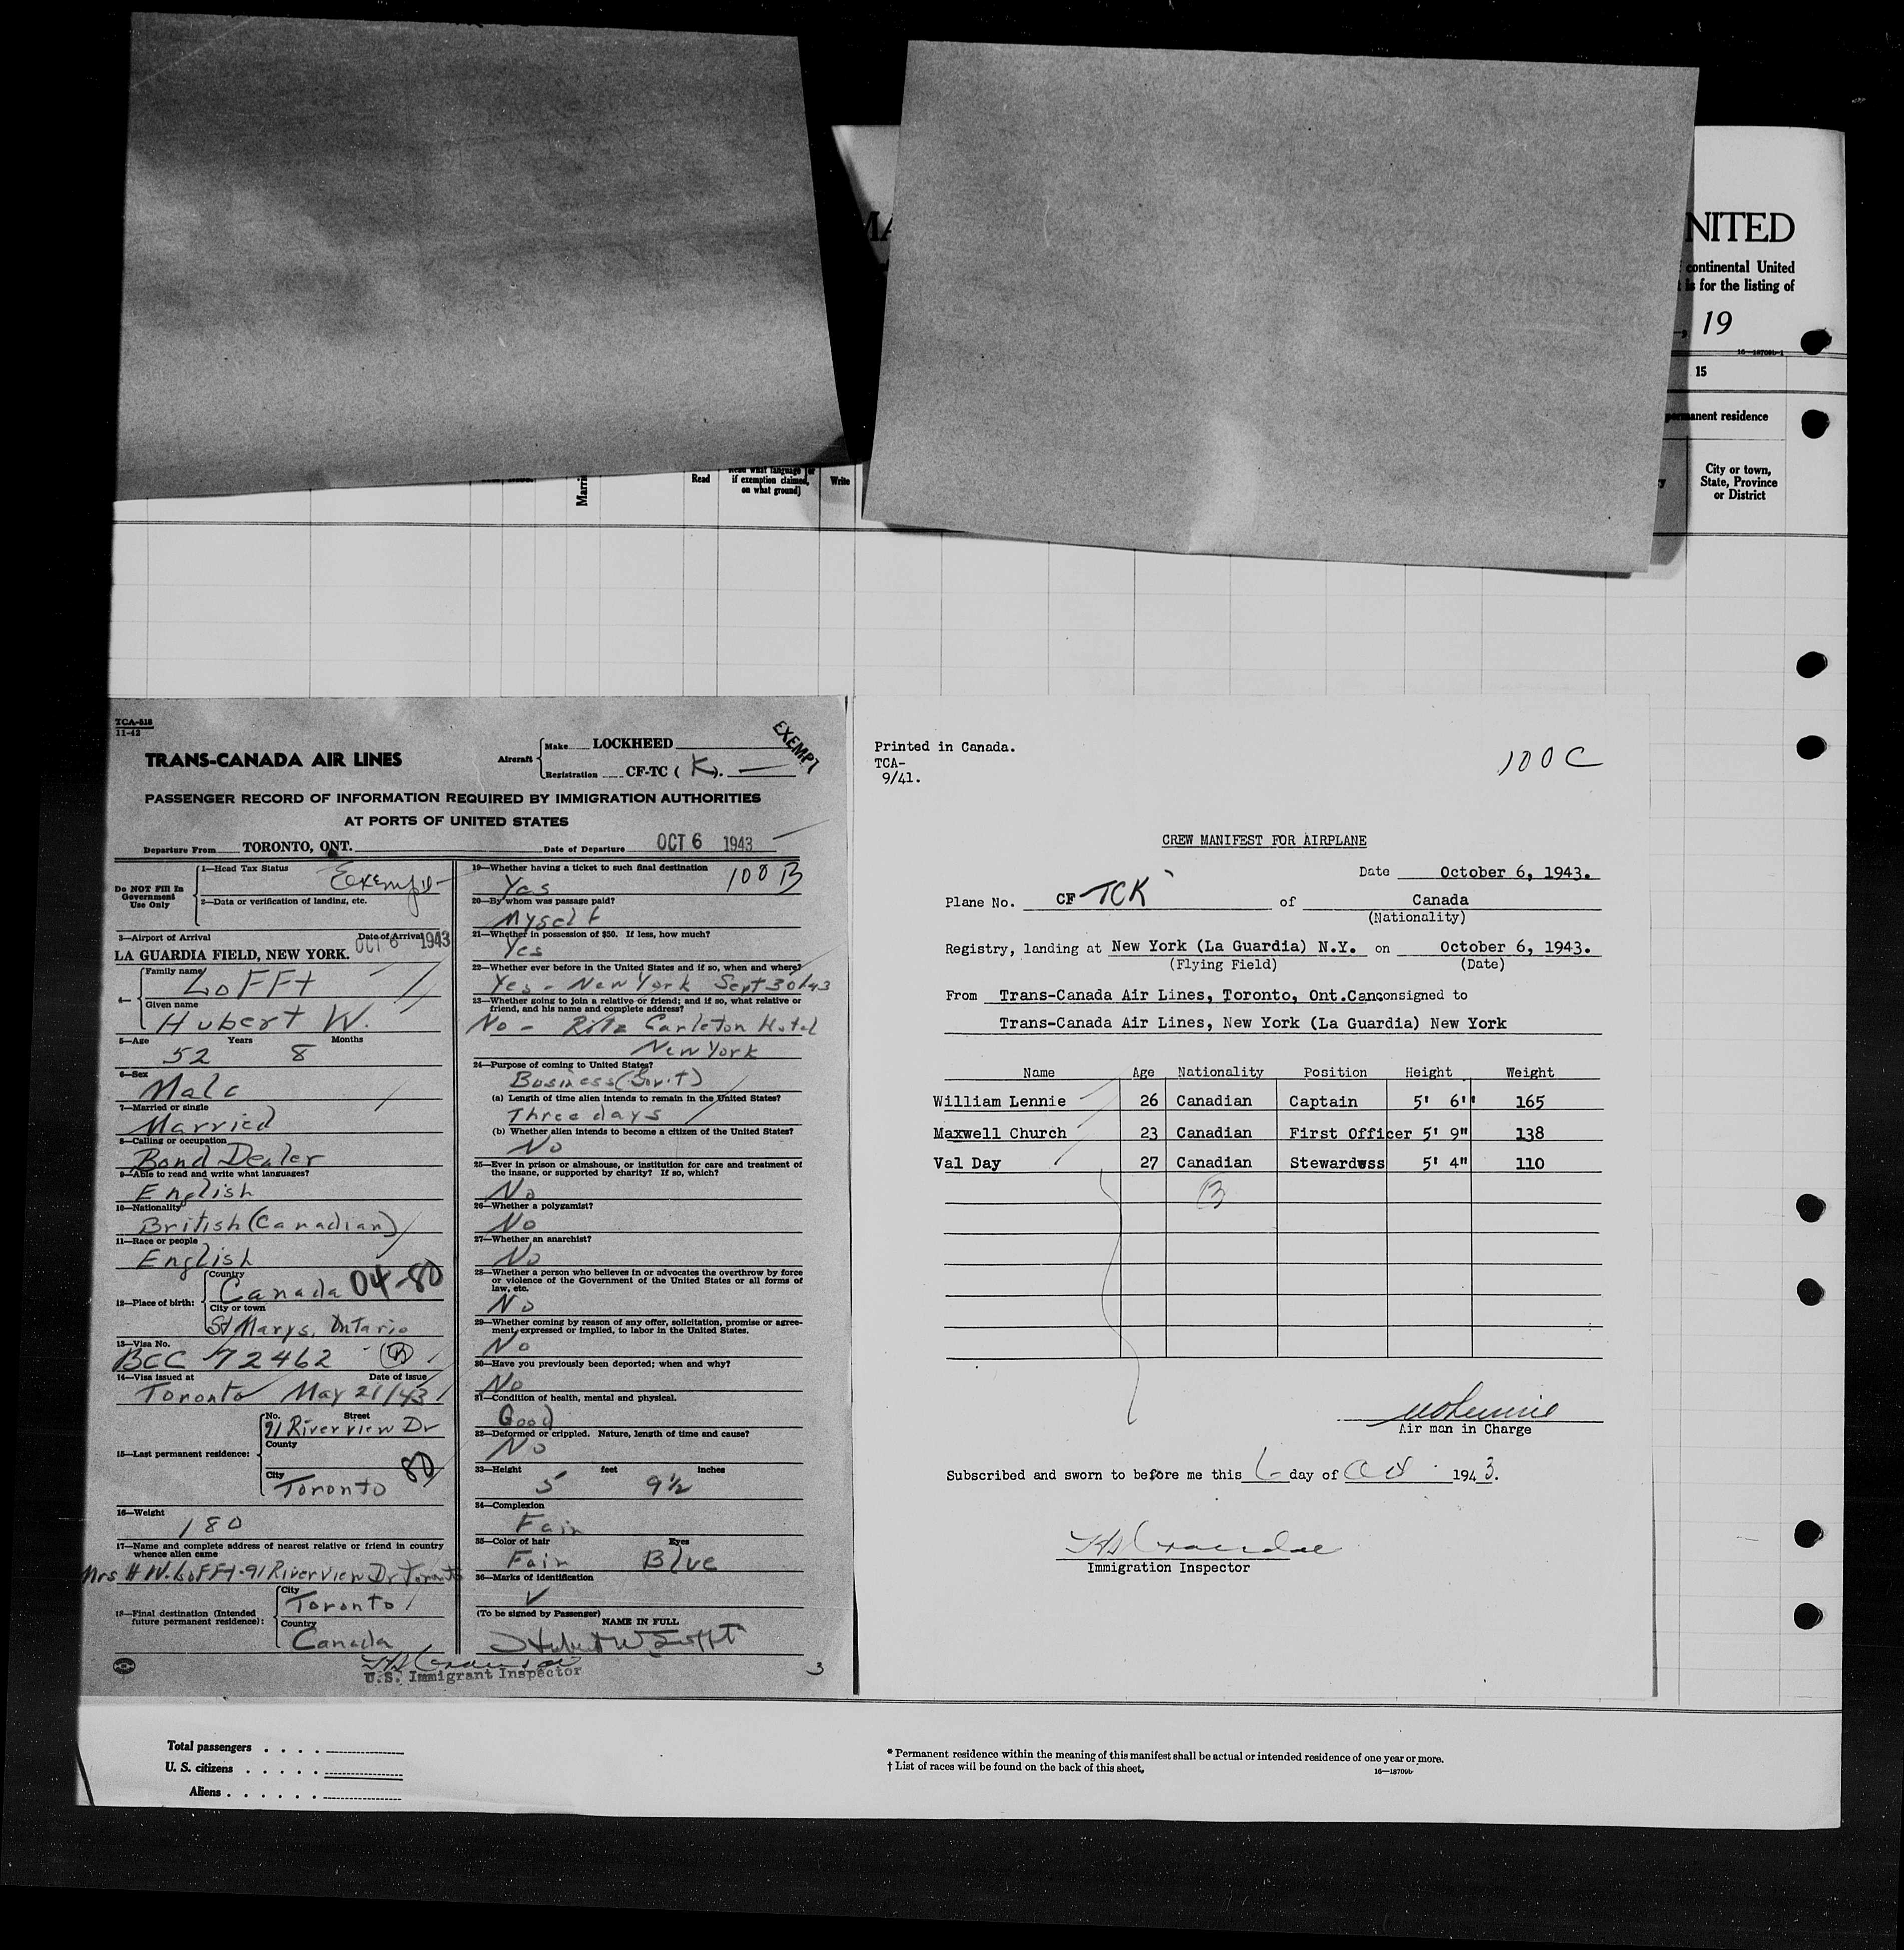 MA
NITED
continental United
is for the listing of
, 19
16—18709b-1
15
permanent residence
City or town,
State, Province
or District
Read
Read what language [or
if exemption claimed,
on what ground]
Write
TCA-518
11-42
TRANS-CANADA AIR LINES
Aircraft
Make LOCKHEED
Registration CF-TC ( K ).
EXEMPT
PASSENGER RECORD OF INFORMATION REQUIRED BY IMMIGRATION AUTHORITIES
AT PORTS OF UNITED STATES
Departure From TORONTO, ONT. Date of Departure OCT 6 1943
Do NOT Fill In
Government
Use Only
1—Head Tax Status Exempt
2—Data or verification of landing, etc.
3—Airport of Arrival Date of Arrival
LA GUARDIA FIELD, NEW YORK. OCT 6 1943
4— Family name
Lofft
Given name
Hubert W.
5—Age Years Months
52 8
6—Sex
Male
7—Married or single
Married
8—Calling or occupation
Bond Dealer
9—Able to read and write what languages?
English
10—Nationality
British (Canadian)
11—Race or people
English
12—Place of birth:
Country
Canada 04-80
City or town
St Marys, Ontario
13—Visa No.
BCC 72462 (B)
14—Visa issued at Date of issue
Toronto May 21/43
15—Last permanent residence:
No. Street
91 Riverview Dr
County
City
Toronto 80
16—Weight
180
17—Name and complete address of nearest relative or friend in country
whence alien came
Mrs H W. Lofft-91 Riverview Dr Toronto
18—Final destination (Intended
future permanent residence):
City
Toronto
Country
Canada
19—Whether having a ticket to such final destination
Yes 100 B
20—By whom was passage paid?
Myself
21—Whether in possession of $50. If less, how much?
Yes
22—Whether ever before in the United States and if so, when and where?
Yes - New York Sept 30/43
23—Whether going to join a relative or friend; and if so, what relative or
friend, and his name and complete address?
No - Ritz Carleton Hotel
New York
24—Purpose of coming to United States?
Business (Gov't)
(a) Length of time alien intends to remain in the United States?
Three days
(b) Whether alien intends to become a citizen of the United States?
No
25—Ever in prison or almshouse, or institution for care and treatment of
the insane, or supported by charity? If so, which?
No
26—Whether a polygamist?
No
27—Whether an anarchist?
No
28—Whether a person who believes in or advocates the overthrow by force
or violence of the Government of the United States or all forms of
law, etc.
No
29—Whether coming by reason of any offer, solicitation, promise or agree-
ment, expressed or implied, to labor in the United States.
No
30—Have you previously been deported; when and why?
No
31—Condition of health, mental and physical.
Good
32—Deformed or crippled. Nature, length of time and cause?
No
33—Height feet inches
5 9½
34—Complexion
Fair
35—Color of hair Eyes
Fair Blue
36—Marks of identification
(To be signed by Passenger)
NAME IN FULL
Hubert W Lofft
U.S. Immigrant Inspector
3
Printed in Canada.
TCA-
9/41.
100 C
CREW MANIFEST FOR AIRPLANE
Date October 6, 1943.
Plane No. CF TCK of Canada
(Nationality)
Registry, landing at New York (La Guardia) N.Y. on October 6, 1943.
(Flying Field) (Date)
From Trans-Canada Air Lines, Toronto, Ont.Can consigned to
Trans-Canada Air Lines, New York (La Guardia) New York
Name Age Nationality Position Height Weight
William Lennie 26 Canadian Captain 5' 6" 165
Maxwell Church 23 Canadian First Officer 5' 9" 138
Val Day 27 Canadian Stewardess 5' 4" 110
(3)
Air man in Charge
Subscribed and sworn to before me this 6 day of Oct. 1943.
Immigration Inspector
Total passengers
U. S. citizens
Aliens
* Permanent residence within the meaning of this manifest shall be actual or intended residence of one year or more.
† List of races will be found on the back of this sheet.
16—18709b